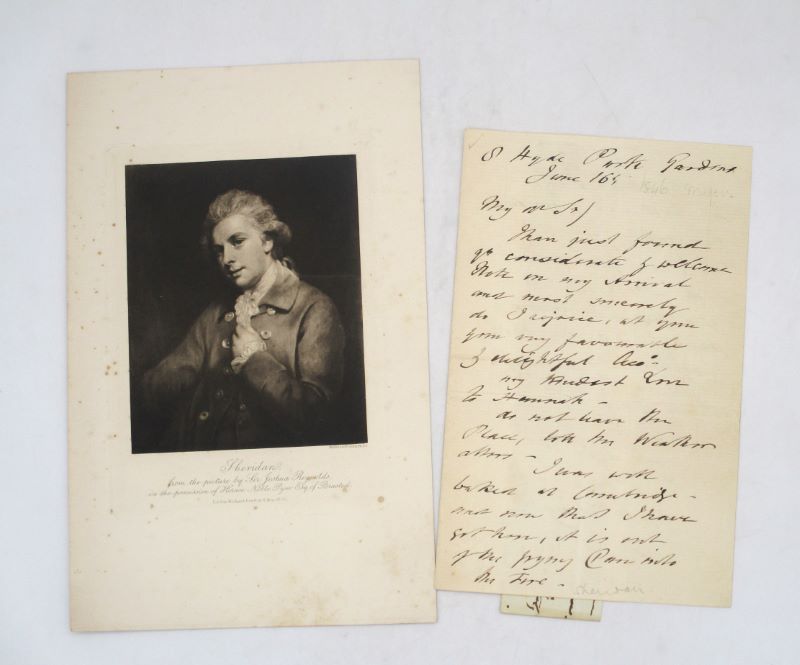 Sheridan.
from the picture by Sir Joshua Reynolds
in the possession of Horace Noble Pym Esq. of Brasted
8 Hyde Park Gardens
June 16
1846
My dr Sir)
I have just found
yr considerate & welcome
Note on my Arrival
and most sincerely
do I rejoice, at your
very favourable
& delightful Acct.
my kindest Love
to Hannah -
do not leave the
Place, till the Weather
alters -
I was well
baked at Cambridge -
and now that I have
got here, it is out
of the frying Pan into
the Fire -
Sheridan